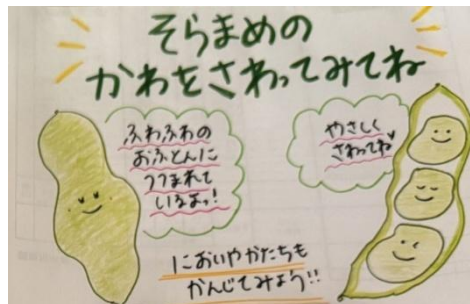 そらまめの
かわをさわってみてね
ふわふわの
おふとんに
つつまれて
いるよっ!
やさしく
さわってね♥
においやかたちも
かんじてみよう!!